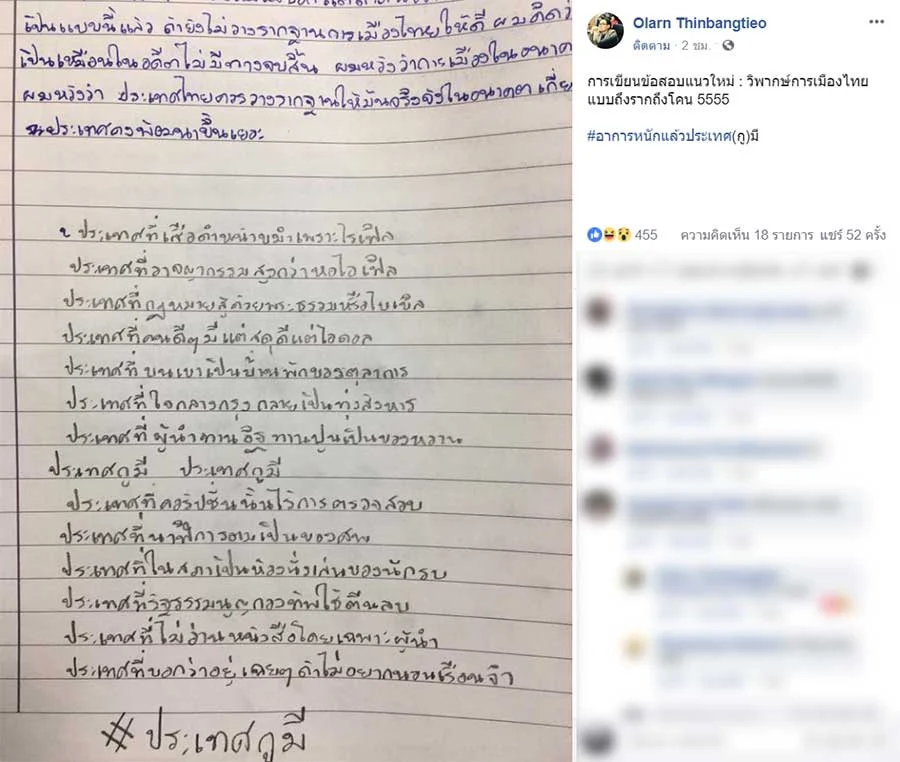 เป็นแบบนี้แล้ว ถ้ายังไม่วางรากฐานการเมืองไทยให้ดี ผมคิดว่
เป็นเหมือนในอดีตไม่มีทางจบสิ้น ผมหวังว่าการเมืองในอนาค
ผมหวังว่า ประเทศไทยควรวางรากฐานให้มันจริงจังในอนาคต
ประเทศคงพัฒนาขึ้นเยอะ
ประเทศที่เสือดำหน้าขมำเพราะไรเฟิล
ประเทศที่อาชญากรรมสูงกว่าหอไอเฟิล
ประเทศที่กฎหมายสู้ด้วยพระธรรมหรือไบเบิล
ประเทศที่คนดีๆ มีแต่สดุดีแต่ไอดอล
ประเทศที่บนเขาเป็นบ้านพักของตุลาการ
ประเทศที่ใจกลางกรุงกลายเป็นทุ่งสังหาร
ประเทศที่ผู้นำทานอิฐทานปูนเป็นของหวาน
ประเทศกูมี ประเทศกูมี
ประเทศที่คอรัปชั่นนั้นไร้การตรวจสอบ
ประเทศที่นาฬิกาเป็นของศพ
ประเทศที่ในสภาเป็นห้องนั่งเล่นของนักรบ
ประเทศที่รัฐธรรมนูญกองทัพใช้ตีนลบ
ประเทศที่ไม่อ่านหนังสือโดยเฉพาะผู้นำ
ประเทศที่บอกว่าอยู่เฉยๆ ถ้าไม่อยากนอนเรือนจำ
#ประเทศกูมี
Olarn Thinbangtieo
ติดตาม · 2 ชม. ·
การเขียนข้อสอบแนวใหม่ : วิพากษ์การเมืองไทย
แบบถึงรากถึงโคน 5555
#อาการหนักแล้วประเทศ(กู)มี
455 ความคิดเห็น 18 รายการ แชร์ 52 ครั้ง